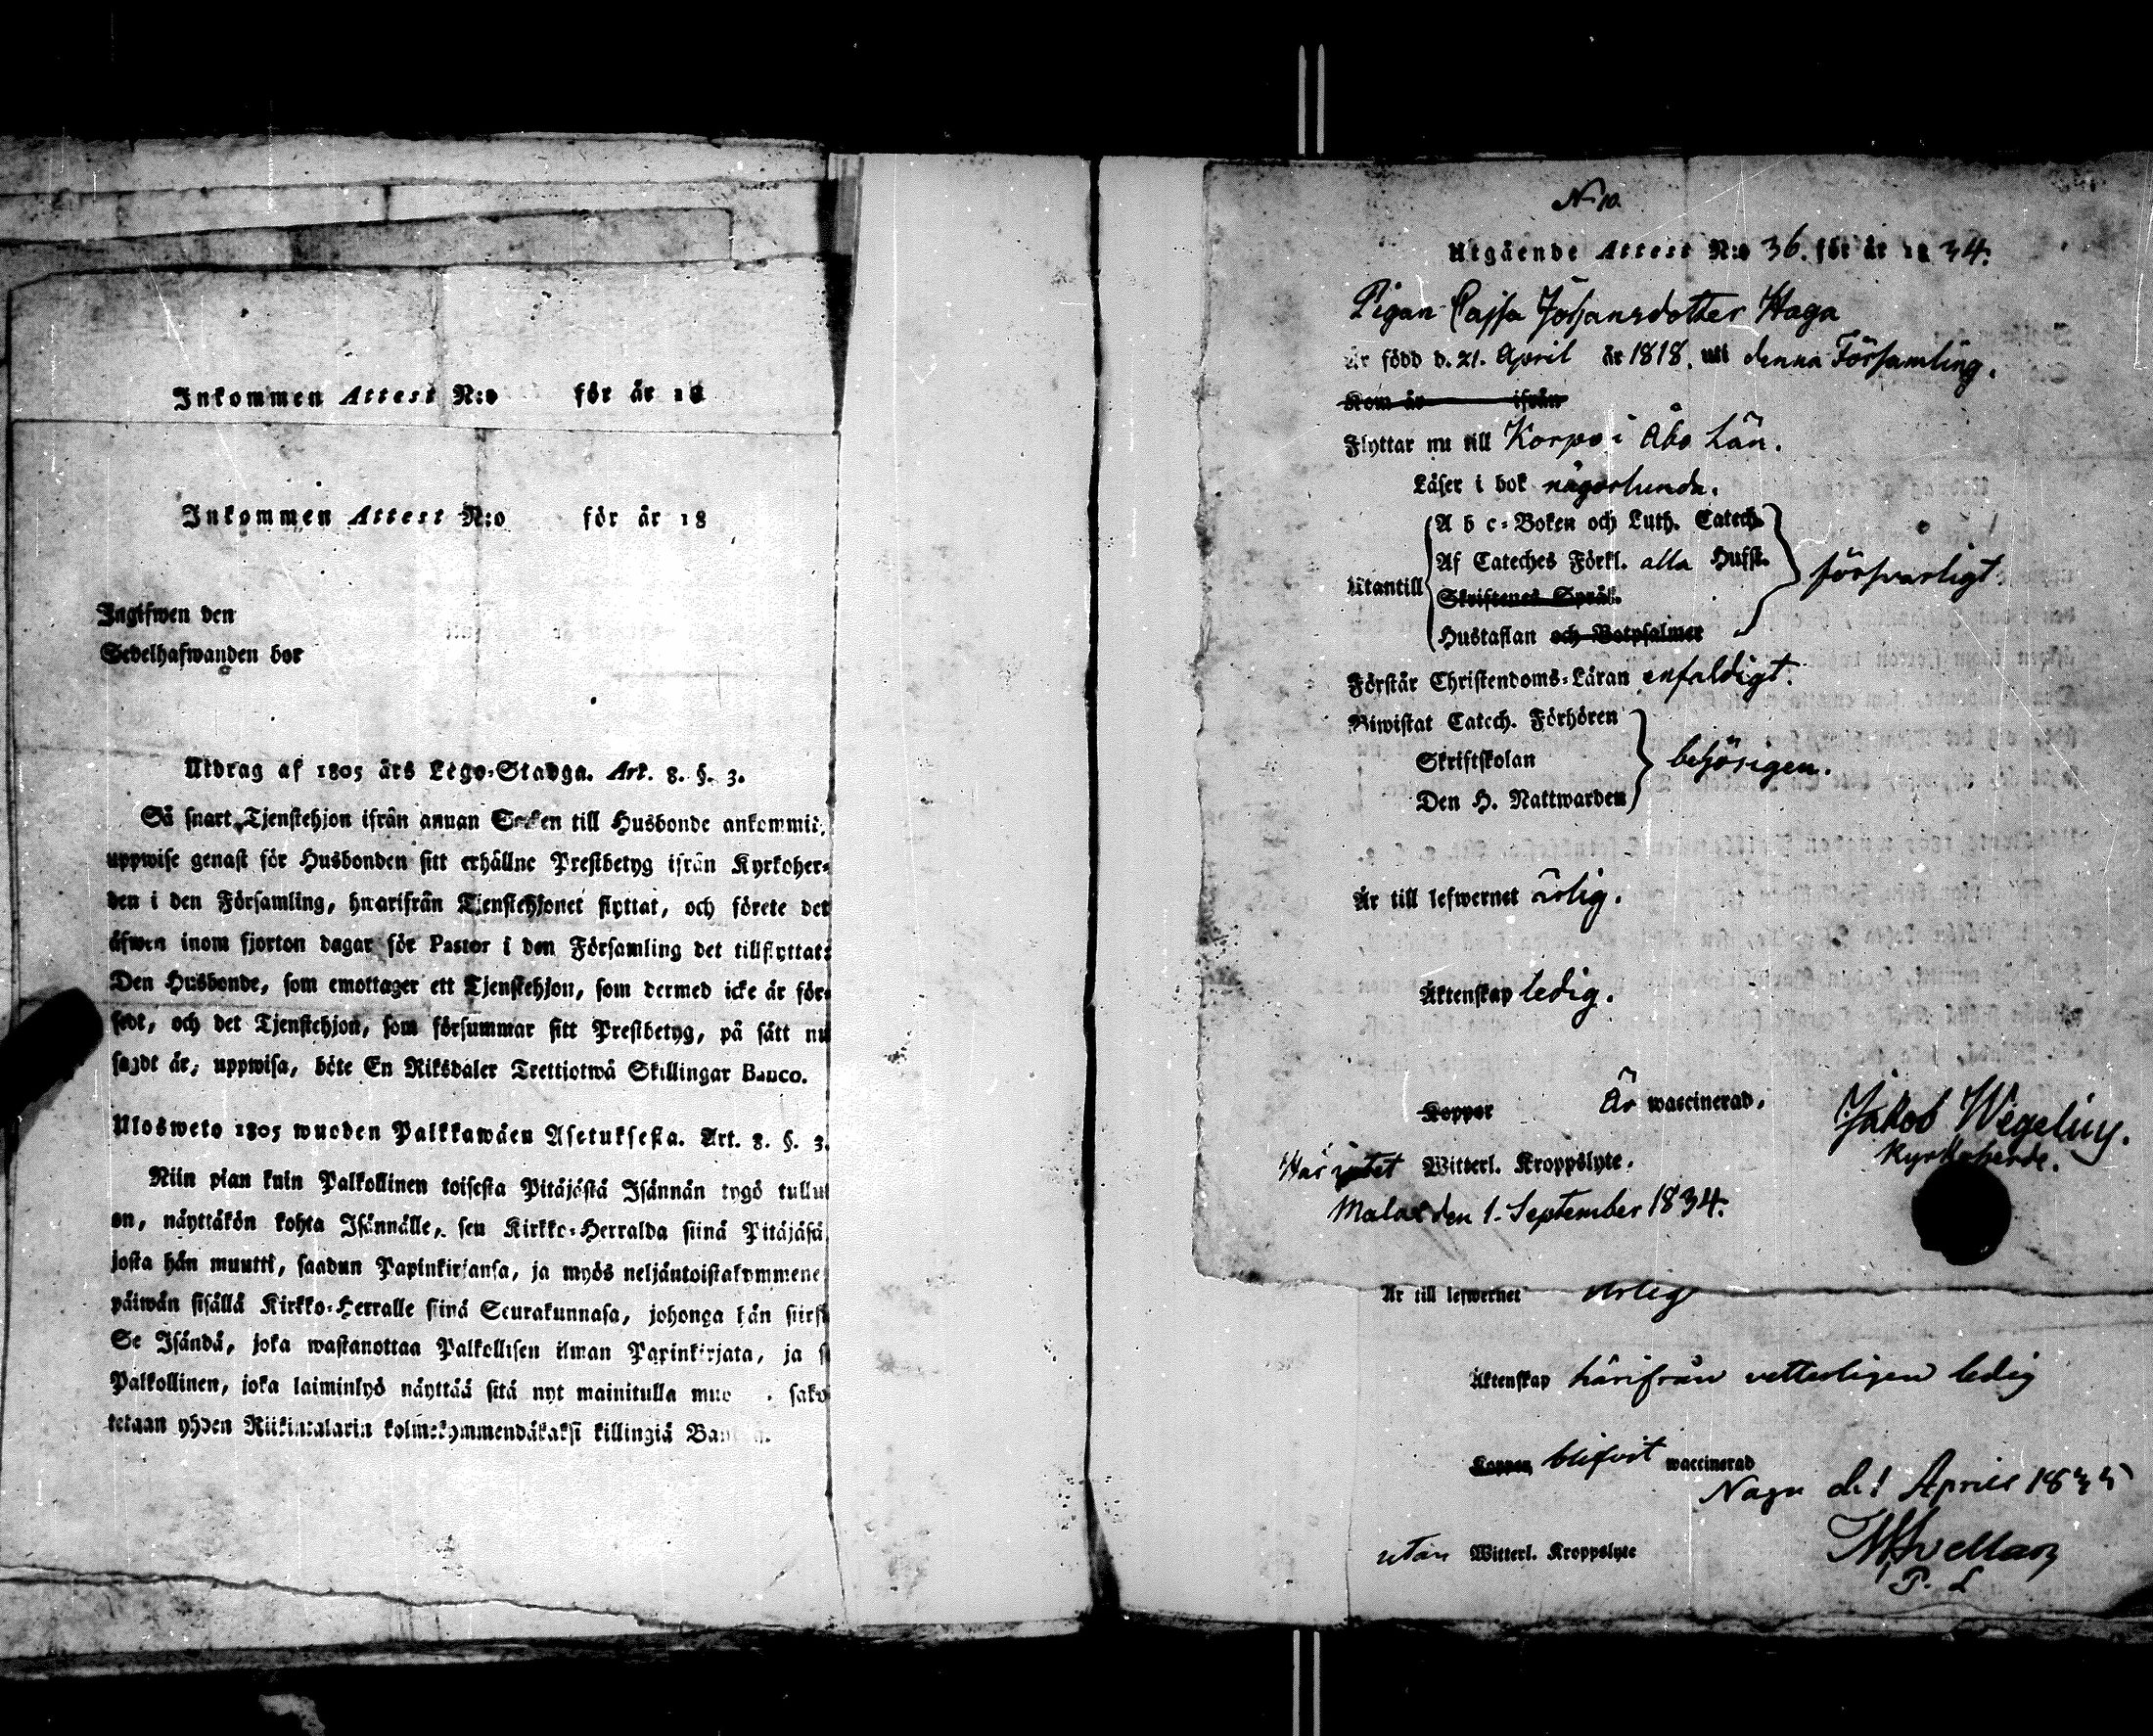 Inkommen Attest N:o för år 18
Inkommen Attest N:o för år 18
Ingifwen den
Sedelhafwanden bor
Utdrag af 1805 års Lego-Stadga. Art. 8. §. 3.
Så snart Tjenstehjon ifrån annan Socken till Husbonde ankommit,
uppwise genast för Husbonden sitt erhållne Prestbetyg ifrån Kyrkoher-
den i den Församling, hwarifrån Tjenstehjonet flyttat, och förete det
äfwen inom fjorton dagar för Pastor i den Församling det tillflyttat:
Den Husbonde, som emottager ett Tjenstehjon, som dermed icke är för-
sedt, och det Tjenstehjon, som försummar sitt Prestbetyg, på sätt nu
sagdt är, uppwisa, böte En Riksdaler Trettiotwå Skillingar Banco.
Ulosweto 1805 wuoden Palkkawäen Asetuksesta. Art. 8. §. 3.
Niin pian kuin Palkollinen toisesta Pitäjästä Isännän tygö tullut
on, näyttäkön kohta Isännälle, sen Kirkko-Herralda siinä Pitäjäsä,
josta hän muutti, saadun Papinkirjansa, ja myös neljäntoistakymmene
päiwän sisällä Kirkko-Herralle siinä Seurakunnasa, johonga hän siirsi
Se Isändä, joka wastanottaa Palkollisen ilman Papinkirjata, ja s
Palkollinen, joka laiminlyö näyttää sitä nyt mainitulla muo sako
tetaan yhden Riikintalarin kolmekymmendäkaksi killingiä Ban
N:o 10.
Utgående Attest N:o 36. för år 1834.
Pigan Cajsa Johansdotter Haga
är född d. 21. April år 1818. uti denna Församling.
Kom år ifrån
Flyttar nu till Korpo i Åbo Län.
Läser i bok någorlunda.
A b c-Boken och Luth. Catech.
Af Cateches Förkl. alla Hufst.
försvarligt.
Utantill
Skriftenes Språk.
Hustaflan och Botpsalmer
Förstår Christendoms-Läran enfaldigt.
Biwistat Catech. Förhören
Skriftskolan
behörigen.
Den H. Nattwarden
Är till lefwernet ärlig.
Äktenskap ledig.
Koppor Är waccinerad.
Jakob Wegelius.
Kyrkoherde.
Har intet Witterl. Kroppslyte.
Malax den 1. September 1834.
Är till lefwernet ärlig
Äktenskap härifrån vetterligen ledig
Koppor blifvit waccinerad
Nagu d. 1 April 1835
utan Witterl. Kroppslyte